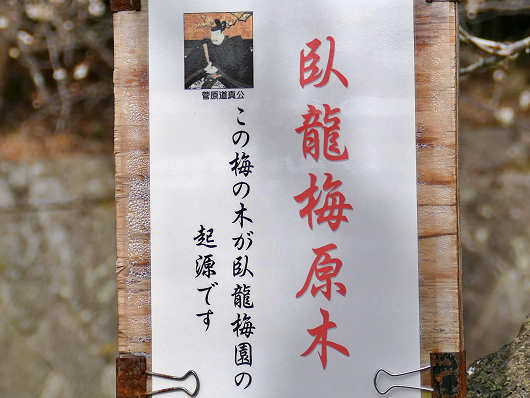 臥龍梅原木
菅原道真公
この梅の木が臥龍梅園の
起源です